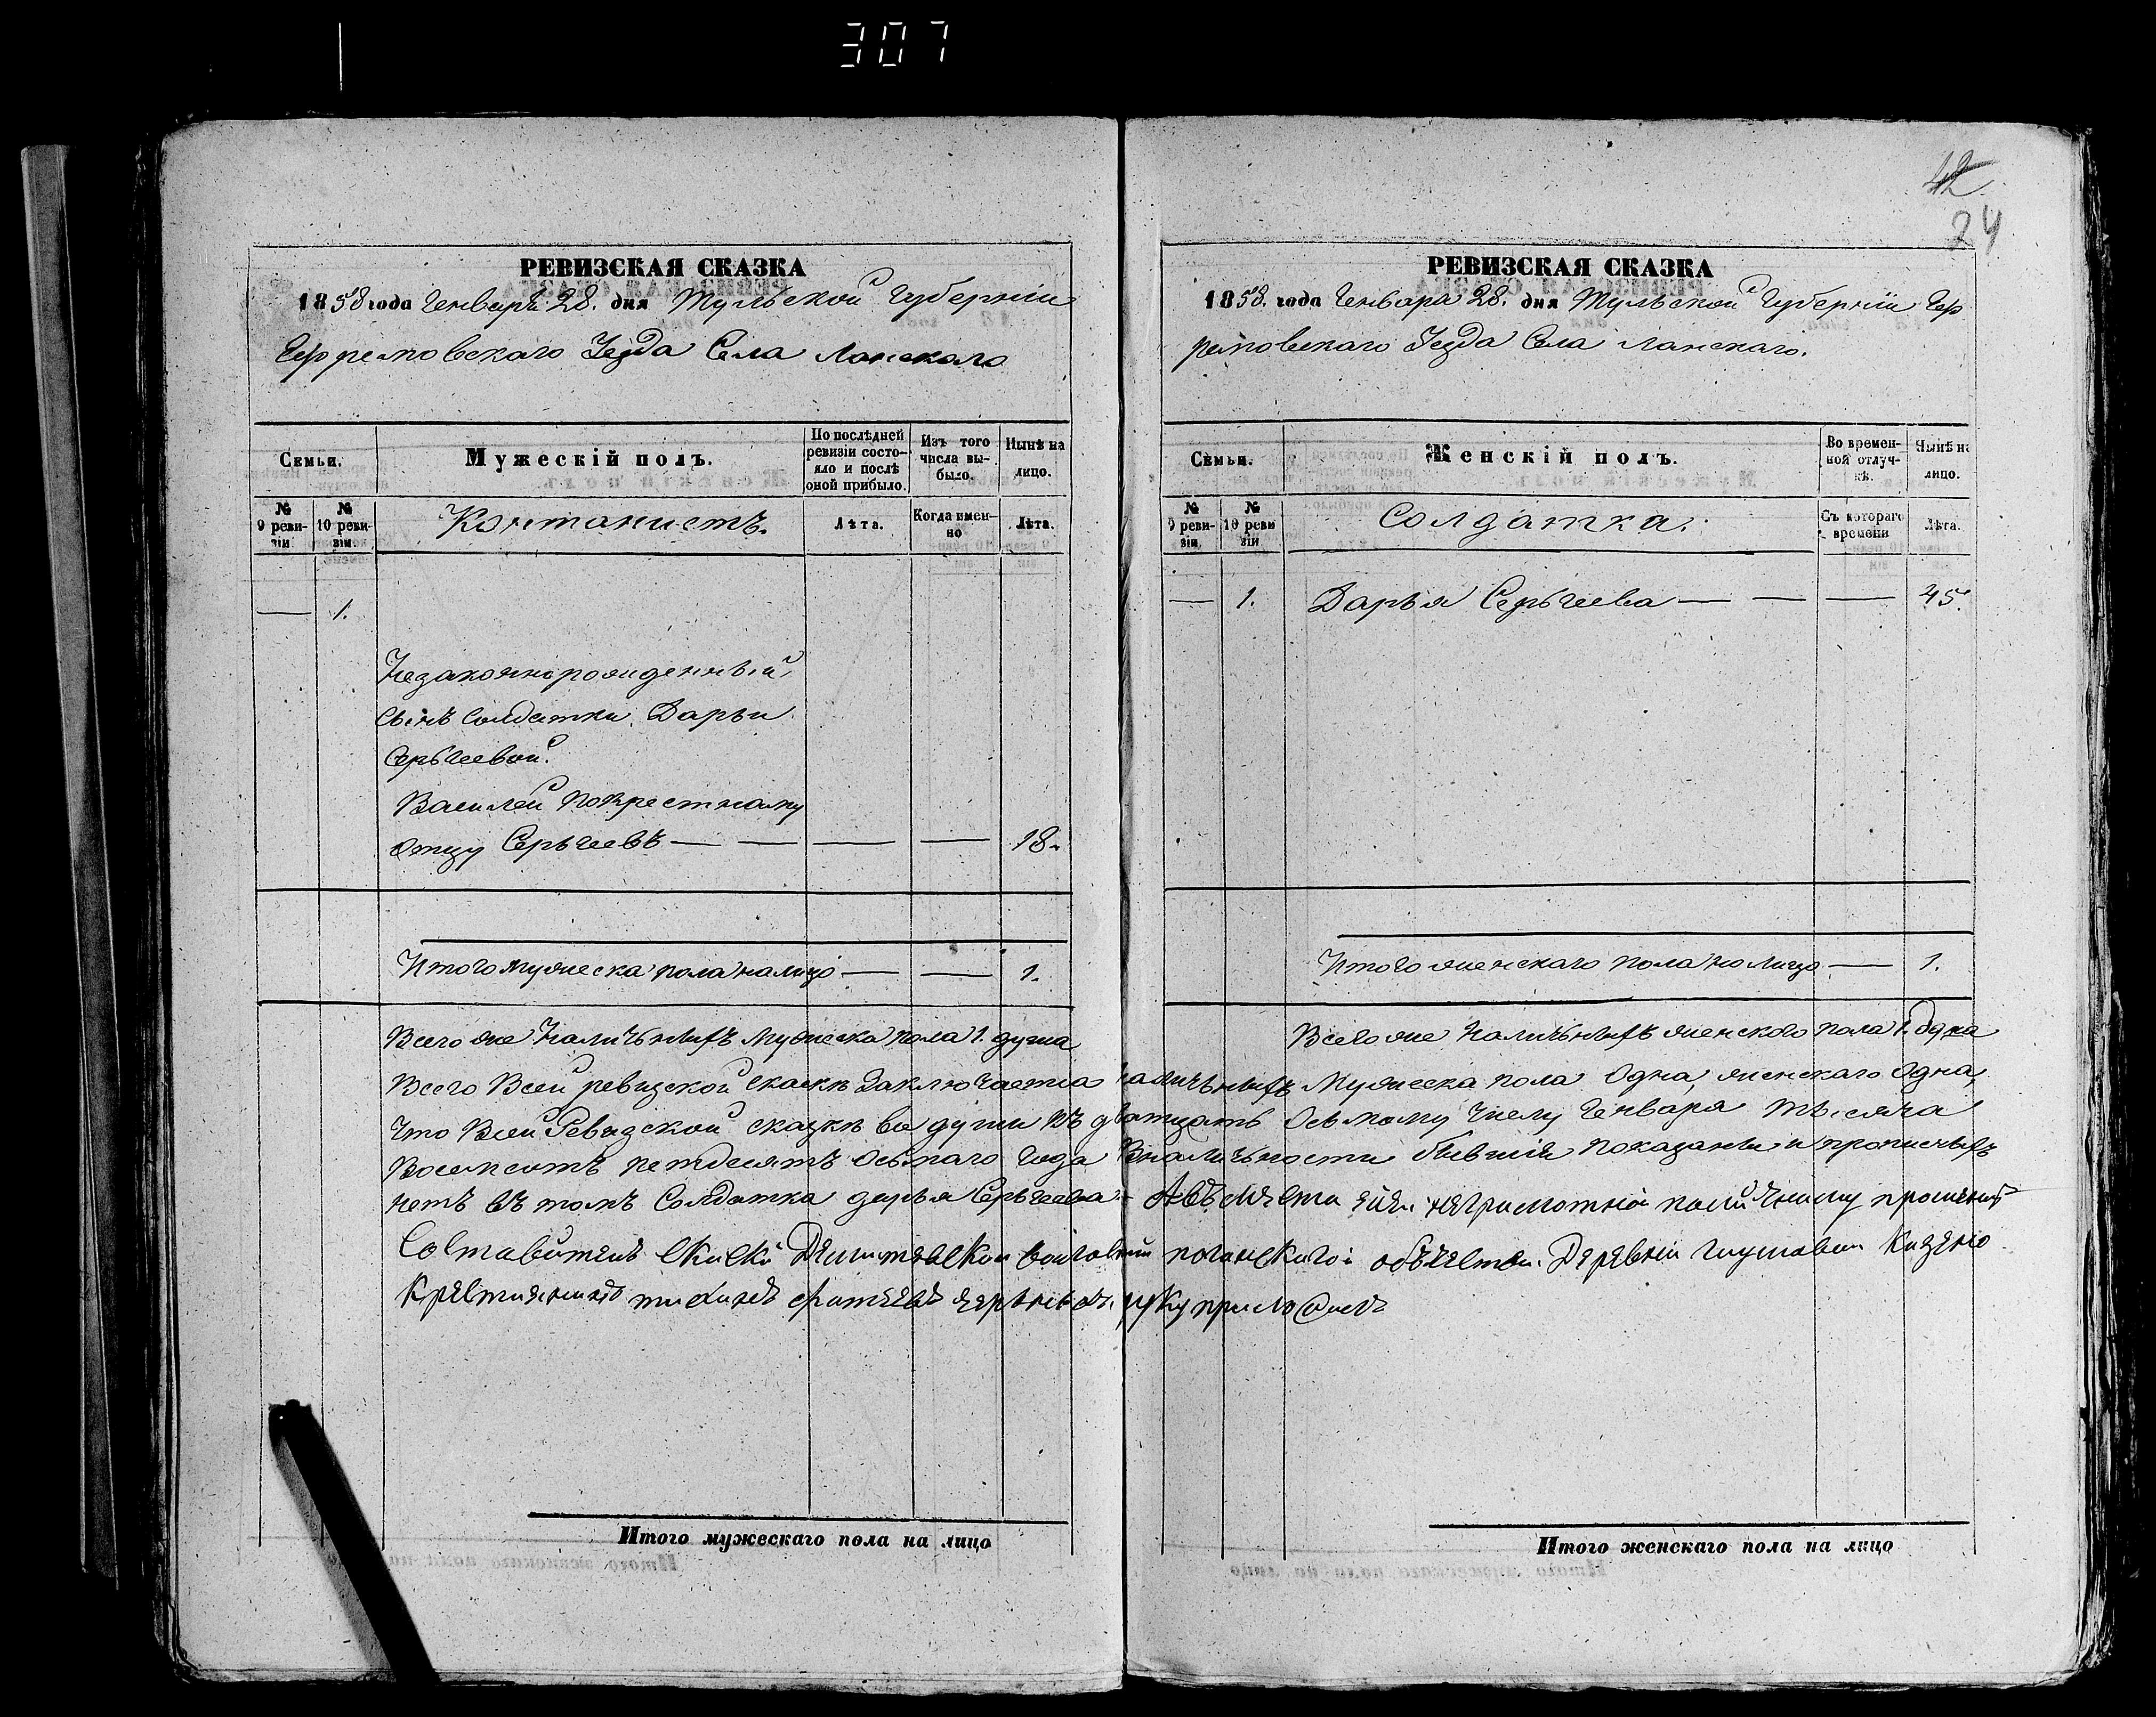 307
42
24
РЕВИЗСКАЯ СКАЗКА
1858 года Генваря 28. дня Тульской Губерніи
Ефремовскаго Уезда Села Лонскаго
Семьи.
Мужескій полъ.
По послѣдней ревизіи состояло и послѣ оной прибыло.
Изъ того числа выбыло.
Нынѣ на лицо.
№ 9 ревизіи.
№ 10 ревизіи.
Контонистъ.
Лѣта.
Когда именно
Лѣта.
— 1.
Незаконнорожденный
Сынъ Солдатки Дарьи
Серьгеевой.
Василей Покрестному
отцу Серьгеевъ — — — — 18.
Итого мужеска пола налицо — — 1.
Всего же Наличьныхъ Мужеска пола 1. душа
РЕВИЗСКАЯ СКАЗКА
1858. года Генвара 28. дня Тульской Губерніи Еф
ремовскаго Уезда Села Лонскаго.
Семьи.
Женскій полъ.
Во временной отлучкѣ.
Нынѣ на лицо.
№ 9 ревизіи.
№ 10 ревизіи
Солдатка.
Съ котораго времени
Лѣта.
— 1. Дарья Серьгеева — — — 45.
Итого женскаго пола на лицо — 1.
Всего же Наличьныхъ женского пола 1. одна
Всего Всей ревизской скаскѣ Заключаетца наличьныхъ Мужеска пола Одна, женскаго Одна,
Что Всей Ревизской сказкѣ ва души къ дватцать Осьмому Числу Генваря Мѣсяча
Восемсотъ петдесятъ Осьмаго Года Вналичьности бывшия показаны и прописныхъ
нетъ въ томъ Солдатка дарья Серьгеева —
Составителъ скаски
Деревни Казено
Крестиянинъ руку приложилъ
Итого мужескаго пола на лицо
Итого женскаго пола на лицо